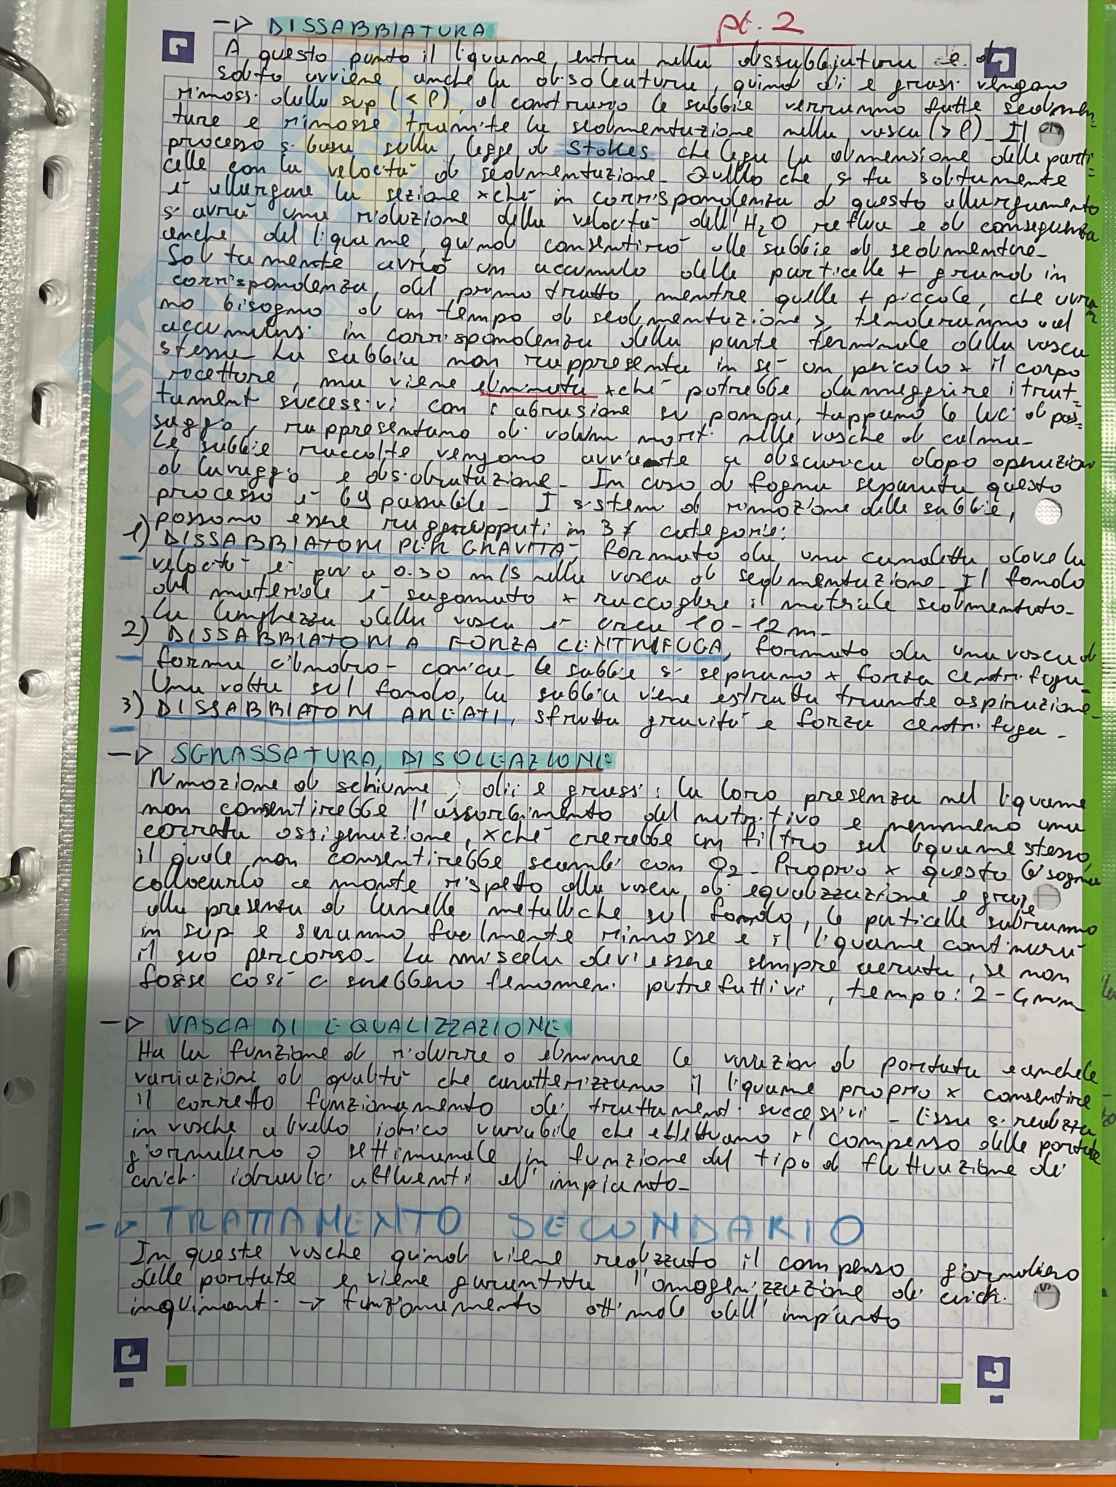 -> DISSABBIATURA pt. 2
A questo punto il liquame, entra nella dissabbiatura e di
solito avviene anche la disoleatura, quindi oli e grassi vengono
rimossi dalla sup (< ρ) al contrario le sabbie verranno fatte sedimen
tare e rimosse tramite la sedimentazione nella vasca (> ρ). Il
processo si basa sulla legge di Stokes che lega la dimensione delle parti
celle con la velocità di sedimentazione. Quello che si fa solitamente
è allargare la sezione xchè in corrispondenza di questo allargamento
si avrà una riduzione della velocità dell'H2O reflua e di conseguenza
anche del liquame, quindi consentirò alle sabbie di sedimentare.
Solitamente avrò un accumulo delle particelle + grandi in
corrispondenza del primo tratto, mentre quelle + piccole, che avra
no bisogno di un tempo di sedimentazione >, tenderanno ad
accumularsi in corrispondenza della parte terminale della vasca
stessa. La sabbia non rappresenta in sè un pericolo x il corpo
ricettore, ma viene eliminata xchè potrebbe danneggiare i trat=
tamenti successivi con: abrasione su pompa, tappano le luci di pas=
saggio, rappresentano di volumi morti nelle vasche di calma.
Le sabbie raccolte vengono avviate a discarica dopo operazioni
di lavaggio e disidratazione. In caso di fogna separata questo
processo è by passabile. I sistemi di rimozione delle sabbie,
possono essere raggruppati in 3 ≠ categorie:
1) DISSABBIATORI PER GRAVITÀ- formato da una canaletta dove la
velocità è pari a 0.30 m/s nella vasca di sedimentazione. Il fondo
del materiale è sagomato x raccogliere il materiale sedimentato.
La lunghezza della vasca è circa 10-12 m.
2) DISSABBIATORI A FORZA CENTRIFUGA, formato da una vasca di
forma cilindro-conica. Le sabbie si separano x forza centrifuga.
Una volta sul fondo, la sabbia viene estratta tramite aspirazione.
3) DISSABBIATORI AREATI, sfrutta gravità e forza centrifuga.
-> SGRASSATURA, DISOLEAZIONE
Rimozione di schiume, olii e grassi: la loro presenza nel liquame
non consentirebbe l'assorbimento del nutritivo e nemmeno una
corretta ossigenazione, xchè creerebbe un filtro sul liquame stesso,
il quale non consentirebbe scambi con O2. Proprio x questo bisogna
collocarlo a monte rispetto alla vasca di equalizzazione e grazie
alla presenza di lamelle metalliche sul fondo, le particelle saliranno
in sup e saranno facilmente rimosse e il liquame continuerà
il suo percorso. La miscela dev'essere sempre aerata, se non
fosse così ci sarebbero fenomeni putrefattivi, tempo: 2-4 min
-> VASCA DI EQUALIZZAZIONE
Ha la funzione di ridurre o eliminare le variazioni di portata e anche le
variazioni di qualità che caratterizzano il liquame proprio x consentire
il corretto funzionamento dei trattamenti successivi. Essa si realizza
in vasche a livello idrico variabile che effettuano il compenso delle portate
giornaliero o settimanale in funzione del tipo di fluttuazione dei
carichi idraulici affluenti all'impianto.
-> TRATTAMENTO SECONDARIO
In queste vasche quindi viene realizzato il compenso giornaliero
delle portate e viene garantita l'omogenizzazione dei carichi
inquinanti -> funzionamento ottimale dell'impianto